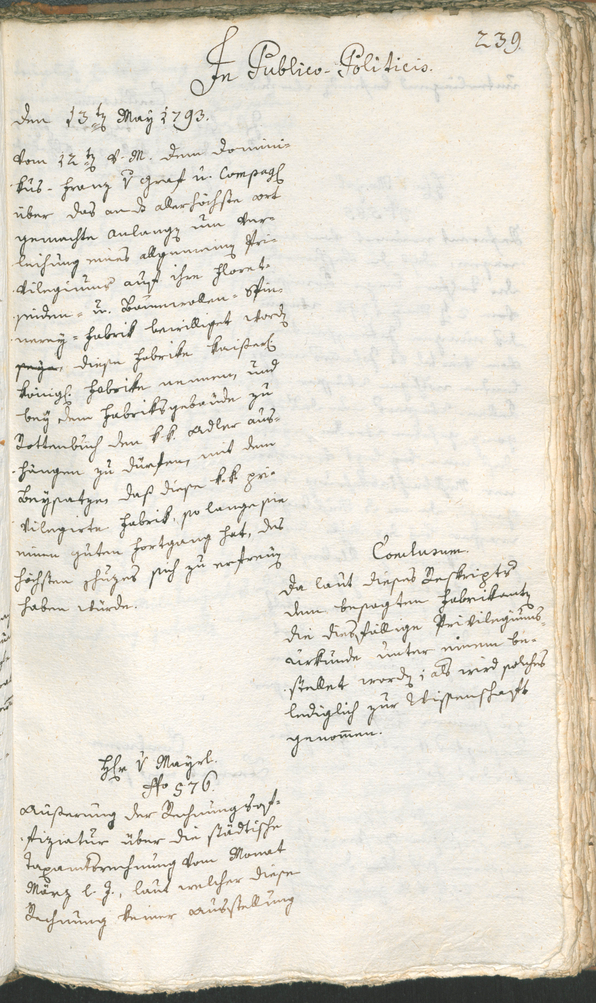 239.
In Publico-Politicis.
den 13t May 1793.
vom 12t d. M. dem Domini-
kus-Franz v Graf u. Compag
über das an d allerhöchste Ort
gemachte Anlangen um Ver-
leihung eines allgemeinen Pri-
vilegiums auf ihre Floret-
seiden- u. Baumwollen-Spin-
nerey-Fabrik bewilliget worden
diese Fabrike kaiserl
königl Fabrike nennen, und
bey dem Fabriksgebäude zu
Rottenbuch den k.k. Adler aus-
hängen zu dürfen, mit dem
Beysatze, daß diese k.k. pri-
vilegirte Fabrik, so lange sie
einen guten Fortgang hat, des
höchsten Schuzes sich zu erfreuen
haben würde.
Conclusum.
Da laut dieses Reskripts
dem besagten Fabrikanten
die diesfällige Privilegiums-
urkunde unter einem be-
stellet worden; als wird solches
lediglich zur Wissenschaft
genommen.
Hr v Mayrl.
No 576.
Äußerung der Rechnungsof-
fiziatur über die städtische
Taxamtsrechnung vom Monat
März l. J., laut welcher diese
Rechnung keiner Ausstellung